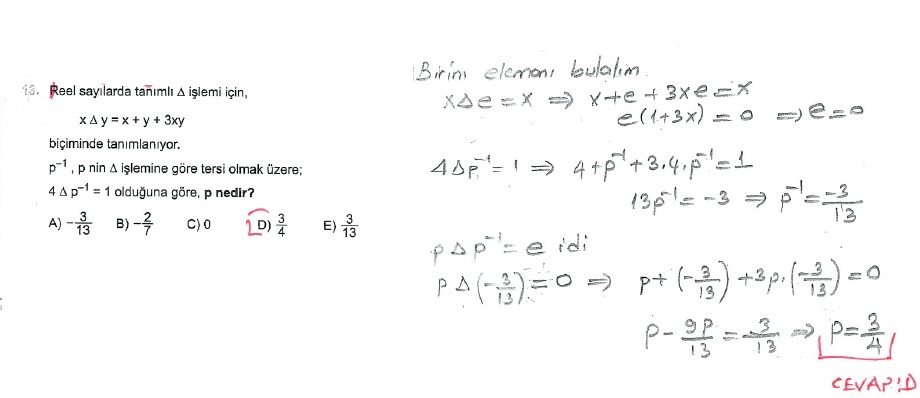 13. Reel sayılarda tanımlı Δ işlemi için,
x Δ y = x + y + 3xy
biçiminde tanımlanıyor.
p⁻¹ , p nin Δ işlemine göre tersi olmak üzere;
4 Δ p⁻¹ = 1 olduğuna göre, p nedir?
A) -3/13 B) -2/7 C) 0 D) 3/4 E) 3/13
Birim elemanı bulalım
xΔe = x ⇒ x+e+3xe = x
e(1+3x) = 0 ⇒ e = 0
4Δp⁻¹ = 1 ⇒ 4+p⁻¹+3.4.p⁻¹ = 1
13p⁻¹ = -3 ⇒ p⁻¹ = -3/13
pΔp⁻¹ = e idi
pΔ(-3/13) = 0 ⇒ p+(-3/13)+3p.(-3/13) = 0
p - 9p/13 = 3/13 ⇒ p = 3/4
CEVAP:D